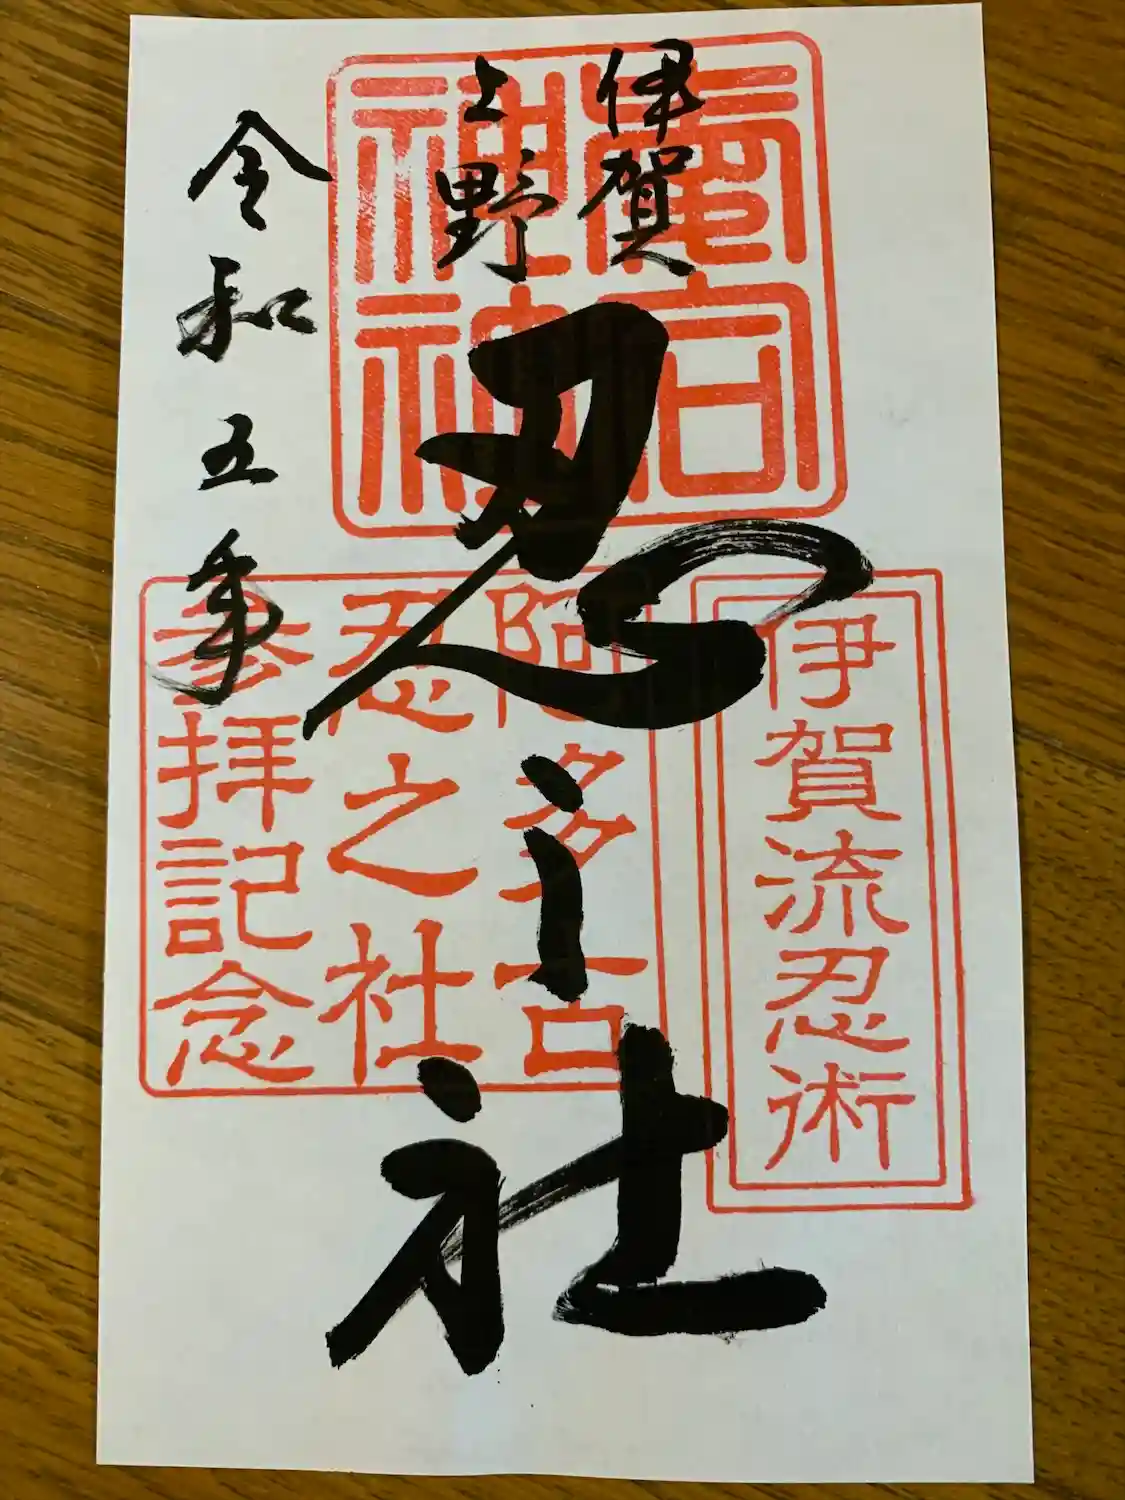 伊賀
上野
忍之社
令和五年
伊賀流忍術
阿多古
忍之社
参拝記念